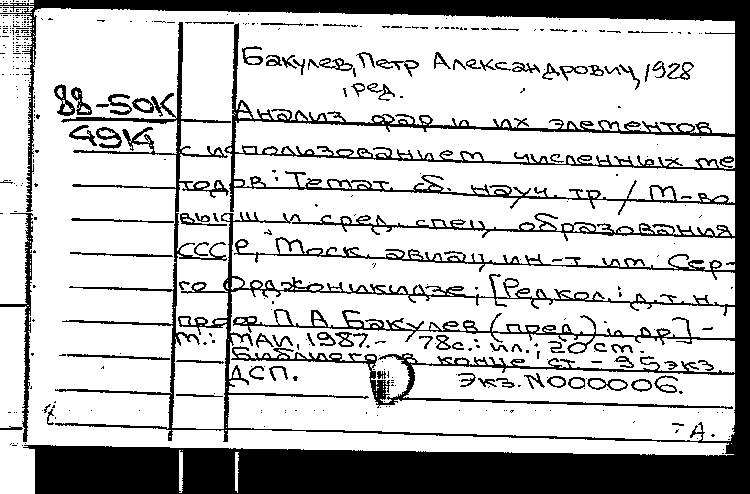 Бакулев, Петр Александрович, 1928
, ред.
88-50К
49К
Анализ фар и их элементов
с использованием численных ме
тодов : Темат. сб. науч. тр. / М-во
высш. и сред. спец. образования
СССР, Моск. авиац. ин-т им. Сер-
го Орджоникидзе; [Редкол.: д.т.н.,
проф. П. А. Бакулев (пред.) и др.] -
М.: МАИ, 1987. - 78с.: ил.; 20 см.
Библиогр в конце ст. - 95 экз.
ДСП.
Экз. N000006.
А.